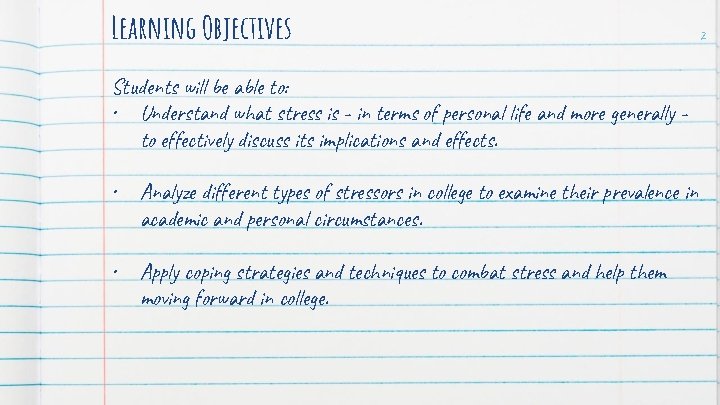 Learning Objectives
2
Students will be able to:
• Understand what stress is - in terms of personal life and more generally -
to effectively discuss its implications and effects.
• Analyze different types of stressors in college to examine their prevalence in
academic and personal circumstances.
• Apply coping strategies and techniques to combat stress and help them
moving forward in college.